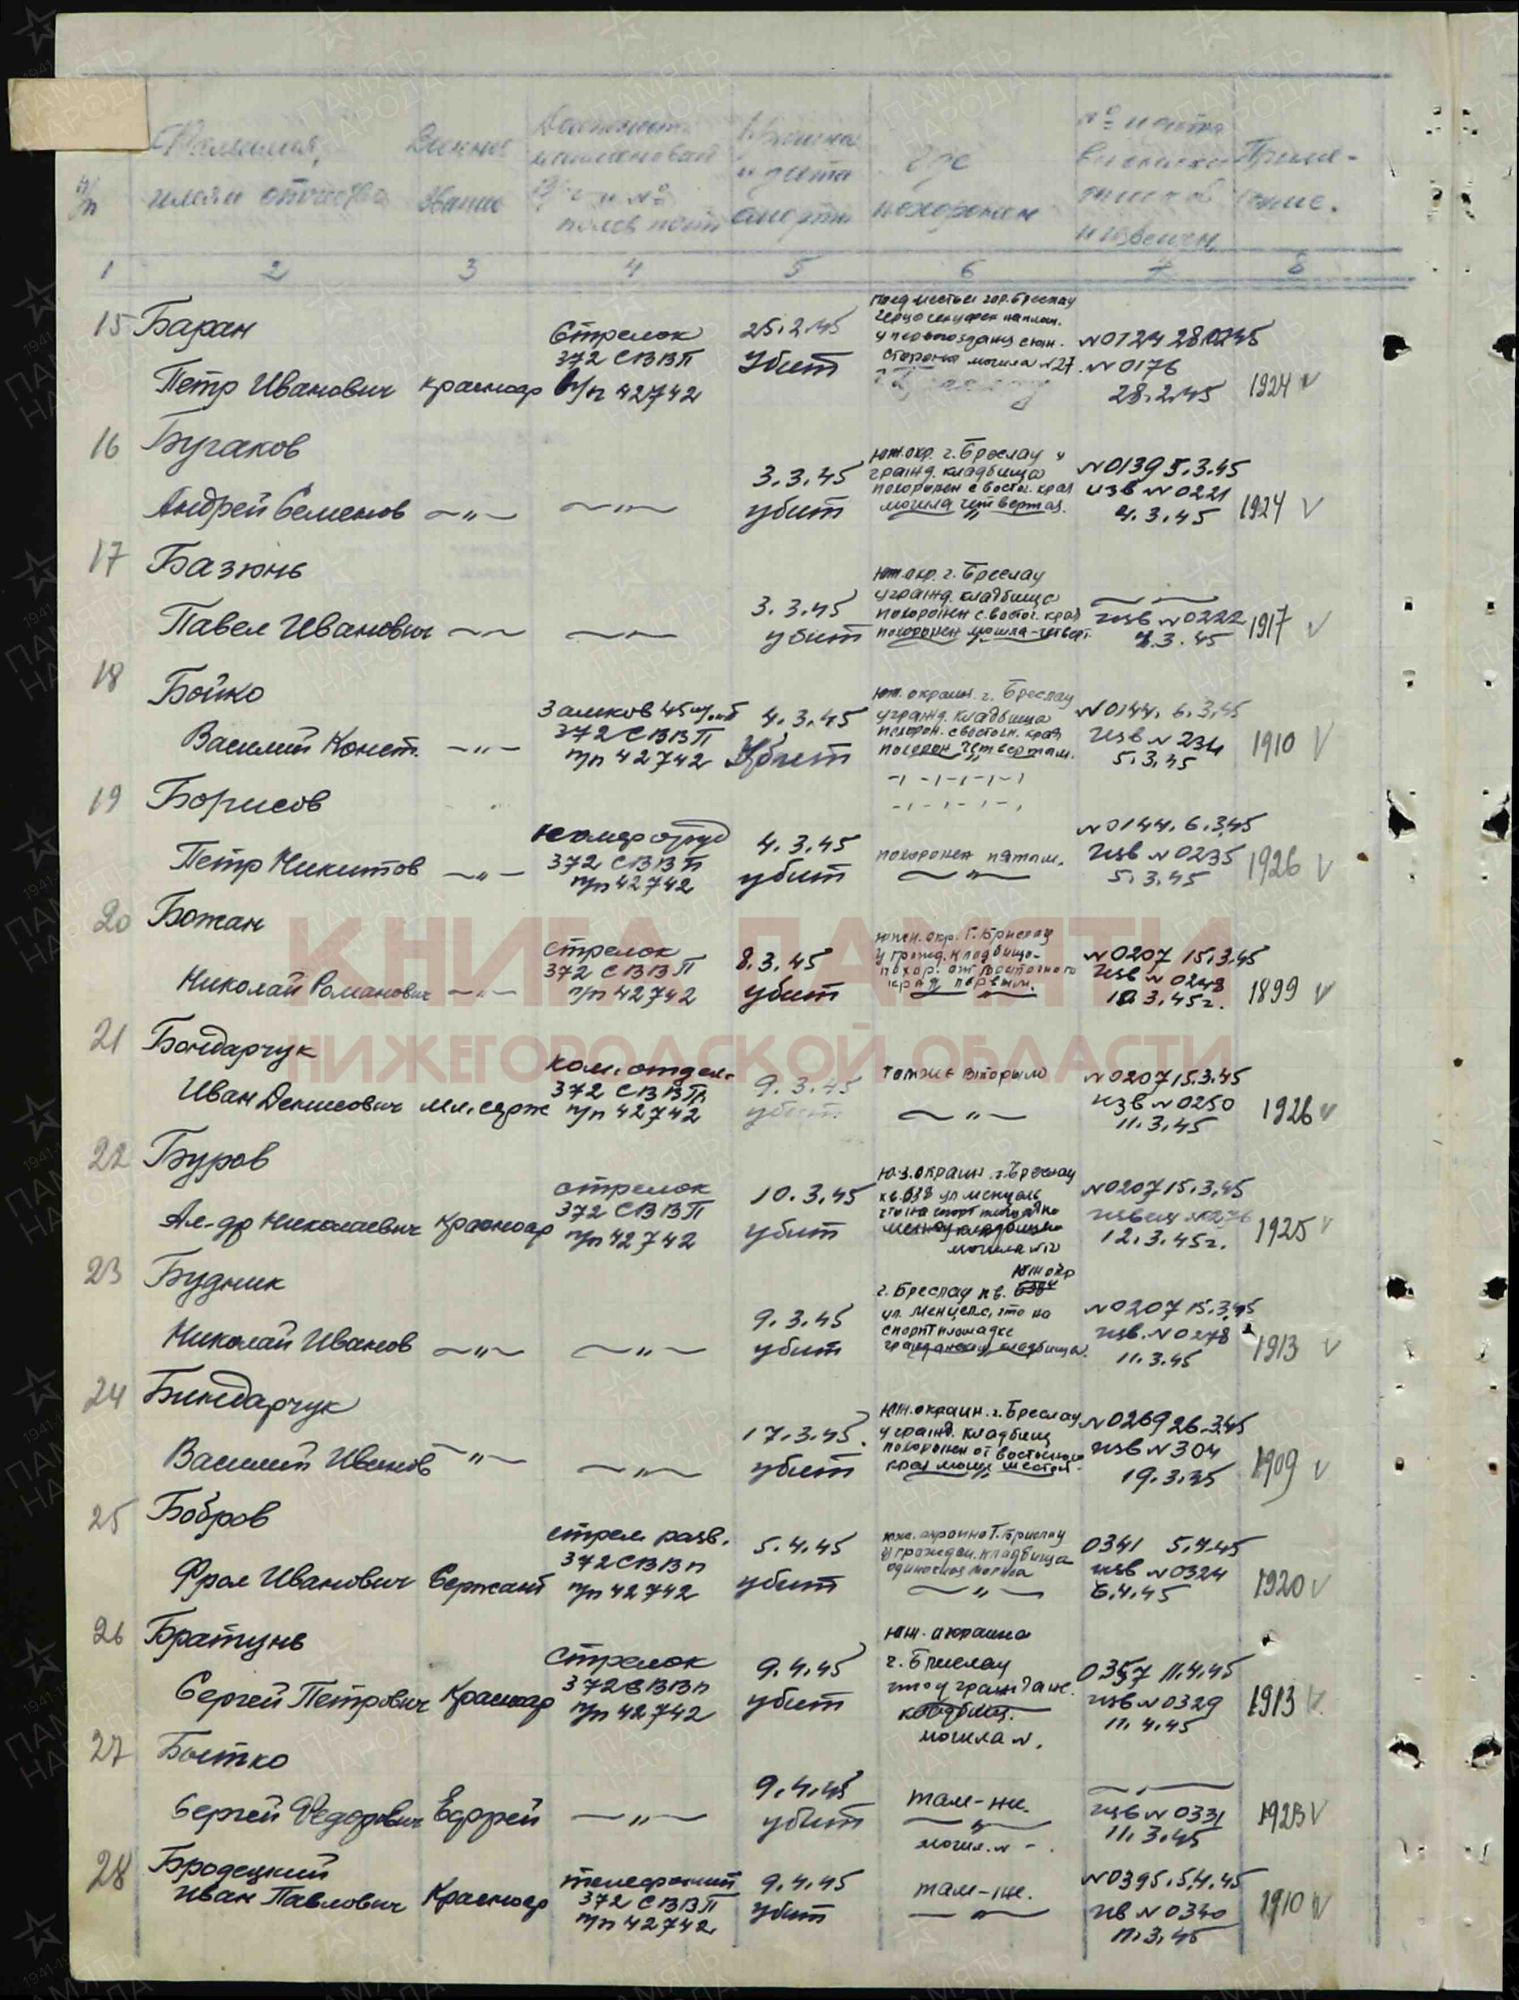 № п/п
Фамилия, имя и отчество
Военное звание
Причина и дата смерти
Где похоронен
Приме-
чание.
1 2 3 4 5 6 7 8
15 Баран
Петр Иванович красноар
Стрелок
372 СВВП
п/п 42742
25.2.45
Убит
№ 0124 28.02.45
№ 0176
28.2.45
1924 v
16 Бугаков
Андрей Семенов —"— —"—
3.3.45
убит
юж. окр. г. Бреслау у
гражд. кладбища
похоронен с восточ. края
могила четвертая.
№ 0139 5.3.45
изв № 0221
4.3.45
1924 v
17 Базюнь
Павел Иванович —"— —"—
3.3.45
убит
юж. окр. г. Бреслау
у гражд. кладбища
похоронен с восточ. края
похоронен могила-четверт.
—"—
изв № 0222
4.3.45
1917 v
18 Бойко
Василий Конст. —"—
372 СВВП
п/п 42742
4.3.45
Убит
юж. окраин. г. Бреслау
у гражд. кладбища
похорон. с восточн. края
похорон четвертым.
№ 0144. 6.3.45
изв № 234
5.3.45
1910 v
19 Борисов
Петр Никитов —"—
номер оруд
372 СВВП
п/п 42742
4.3.45
убит
похоронен пятым.
—"—
№ 0144. 6.3.45
изв № 0235
5.3.45
1926 v
20 Божан
Николай Романович —"—
стрелок
372 СВВП
п/п 42742
8.3.45
убит
южн. окр. г. Брислау
у гражд. кладбища-
похор. от восточного
края первым.
№ 0207 15.3.45
изв № 0248
10.3.45г.
1899 v
21 Бондарчук
Иван Денисович мл. серж
ком. отдел.
372 СВВП.
п/п 42742
9.3.45
убит.
тамже вторым
—"—
№ 0207 15.3.45
изв № 0250
11.3.45
1926 v
22 Буров
Ал-др Николаевич красноар
стрелок
372 СВВП
п/п 42742
10.3.45
убит
ю.з. окраин. г. Бреслау
могила №12
№ 0207 15.3.45
извещ № 0276
12.3.45г.
1925 v
23 Будник
Николай Иванов —"— —"—
9.3.45
убит
юж окр
г. Бреслау кв.
ул. Менцель, что на
спортплощадке
гражданский кладбища.
№ 0207 15.3.45
изв. № 0278
11.3.45
1913 v
24 Биндарчук
Василий Иванов —"— —"—
17.3.45.
убит
юж. окраин. г. Бреслау
у гражд. кладбищ
похоронен от восточного
края могил шестой
№ 0269 26.3.45
изв № 304
19.3.45
1909 v
25 Бобров
Фрол Иванович Сержант
стрел разв.
372 СВВП
п/п 42742
5.4.45
убит
юж. окраина г. Брислау
у граждан. кладбища
одиночная могила
—"—
0341 5.4.45
изв № 0324
6.4.45
1920 v
26 Братунь
Сергей Петрович Красноар
Стрелок
372 СВВП
п/п 42742
9.4.45
убит
юж. окраина
г. Брислау
что у граждане.
кладбищ.
могила №.
0357 11.4.45
изв № 0329
11.4.45
1913 v
27 Бостко
Сергей Федорович Ефрей —"—
9.4.45
убит
там-же.
—"—
могил. № -.
—"—
изв № 0331
11.3.45
1923 v
28 Бродецкий
Иван Павлович Красноар
телефонист
372 СВВП
п/п 42742
9.4.45
убит
там-же.
—"—
№ 0395. 5.4.45
ив № 0340
11.3.45
1910 v
КНИГА ПАМЯТИ
НИЖЕГОРОДСКОЙ ОБЛАСТИ
ПАМЯТЬ НАРОДА